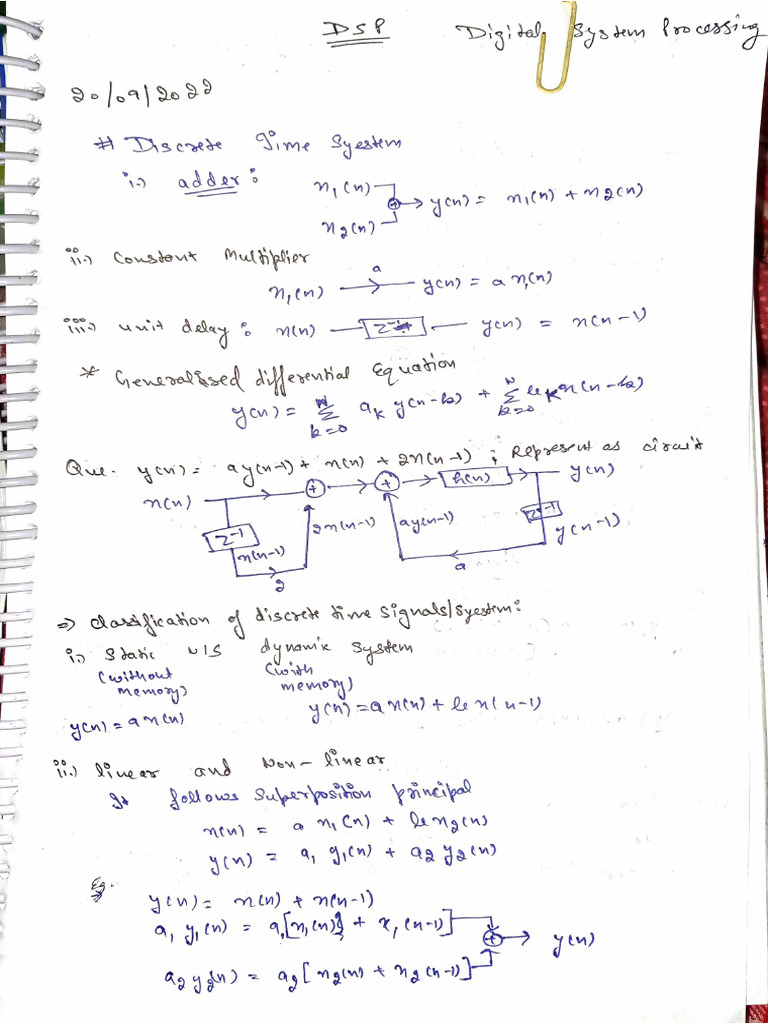 DSP Digital System Processing
20/09/2022
# Discrete Time Syestem
i.) adder:
x1(n)
⊕→ y(n) = x1(n) + x2(n)
x2(n)
ii.) Constant Multiplier
a
x1(n) → y(n) = a x1(n)
iii.) unit delay: x(n) — Z⁻¹ — y(n) = x(n-1)
* Generalised differential Equation
y(n) = N∑k=0 ak y(n-k) + N∑k=0 bk x(n-k)
Que. y(n) = ay(n-1) + x(n) + 2x(n-1) ; Represent as circuit
x(n) + + h(n) y(n)
Z⁻¹ 2x(n-1) ay(n-1) Z⁻¹
x(n-1) y(n-1)
2 a
⇒ classification of discrete time signals/syestem:
i.) Static v/s dynamic System
(without memory) (with memory)
y(n) = a x(n) y(n) = a x(n) + b x(n-1)
ii.) linear and Non-linear
It follows Superposition principal
x(n) = a x1(n) + b x2(n)
y(n) = a1 y1(n) + a2 y2(n)
Eg.
y(n) = x(n) + x(n-1)
a1 y1(n) = a1[x1(n) + x1(n-1)]
⊕→ y(n)
a2 y2(n) = a2[x2(n) + x2(n-1)]